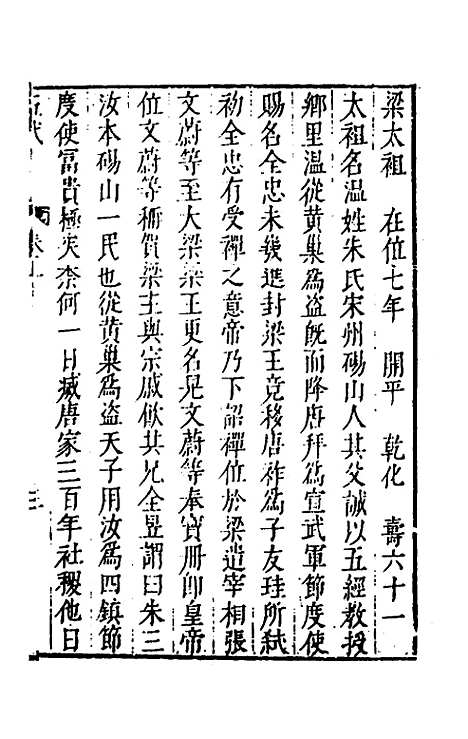 梁太祖　在位七年　開平　乾化　壽六十一
太祖名温姓朱氏宋州碭山人其父誠以五經教授
鄉里温從黄巢爲盗既而降唐拜爲宣武軍節度使
賜名全忠未幾進封梁王竟移唐祚爲子友珪所弑
初全忠有受禪之意帝乃下詔禪位於梁遣宰相張
文蔚等至大梁梁王更名晃文蔚等奉寳册卽皇帝
位文蔚等稱賀梁主與宗戚飲其兄全昱謂曰朱三
汝本碭山一民也從黄巢爲盗天子用汝爲四鎮節
度使冨貴極矣柰何一日滅唐家三百年社稷他日